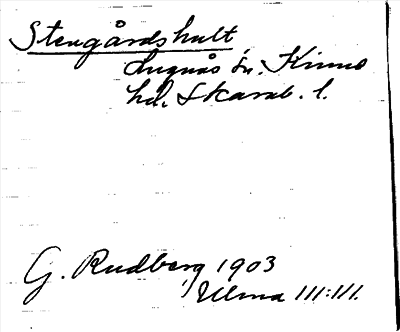 Stengårdshult
Lugnås sn. Kinne
hd. Skarab. l.
G. Rudberg 1903
Ulma 111:111.